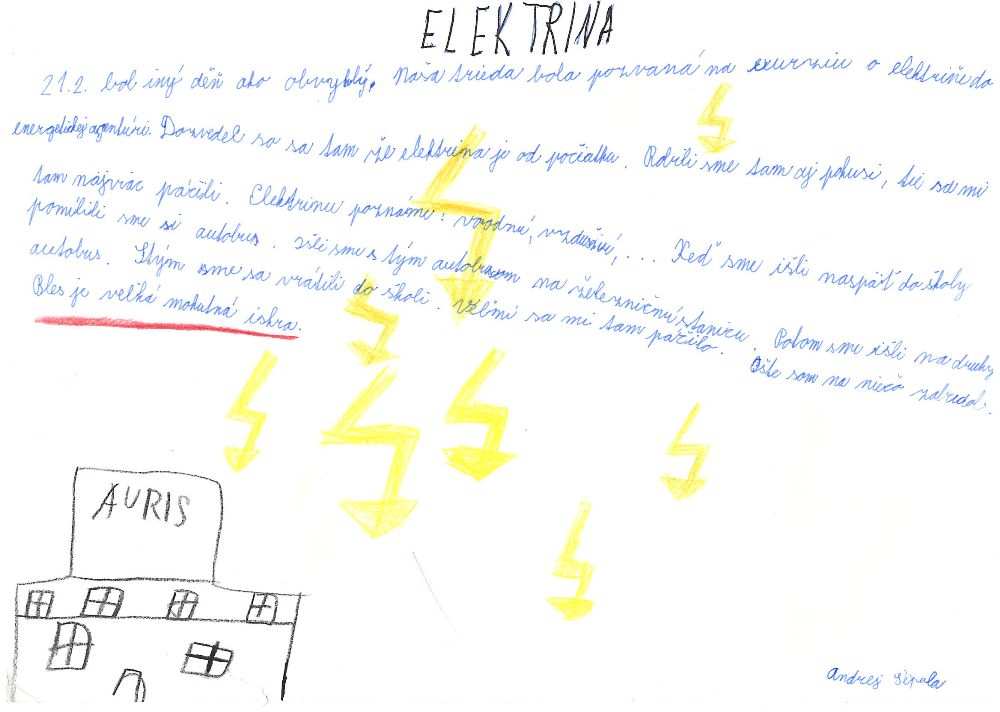 ELEKTRINA
21.2. bol iný děň ako obvyklý. Naša trieda bola pozvaná na exurziu o elektriňe do
energetickej agentúri. Dozvedel so sa tam že elektrina je od počiatku. Robili sme tam aj pokusi, tie sa mi
tam najviac páčili. Elektrinu poznáme: vodnú, vzdušnú, ... Keď sme išli naspäť do školy
pomílili sme si autobus. išli sme s tým autobusom na železničnú stanicu. Potom sme išli na druhy
autobus. Stým sme sa vrátili do školi. Velmi sa mi tam páčilo. Ešte som na niečo zabudol.
Bles je veľká mohutná iskra.
AURIS
Andrej